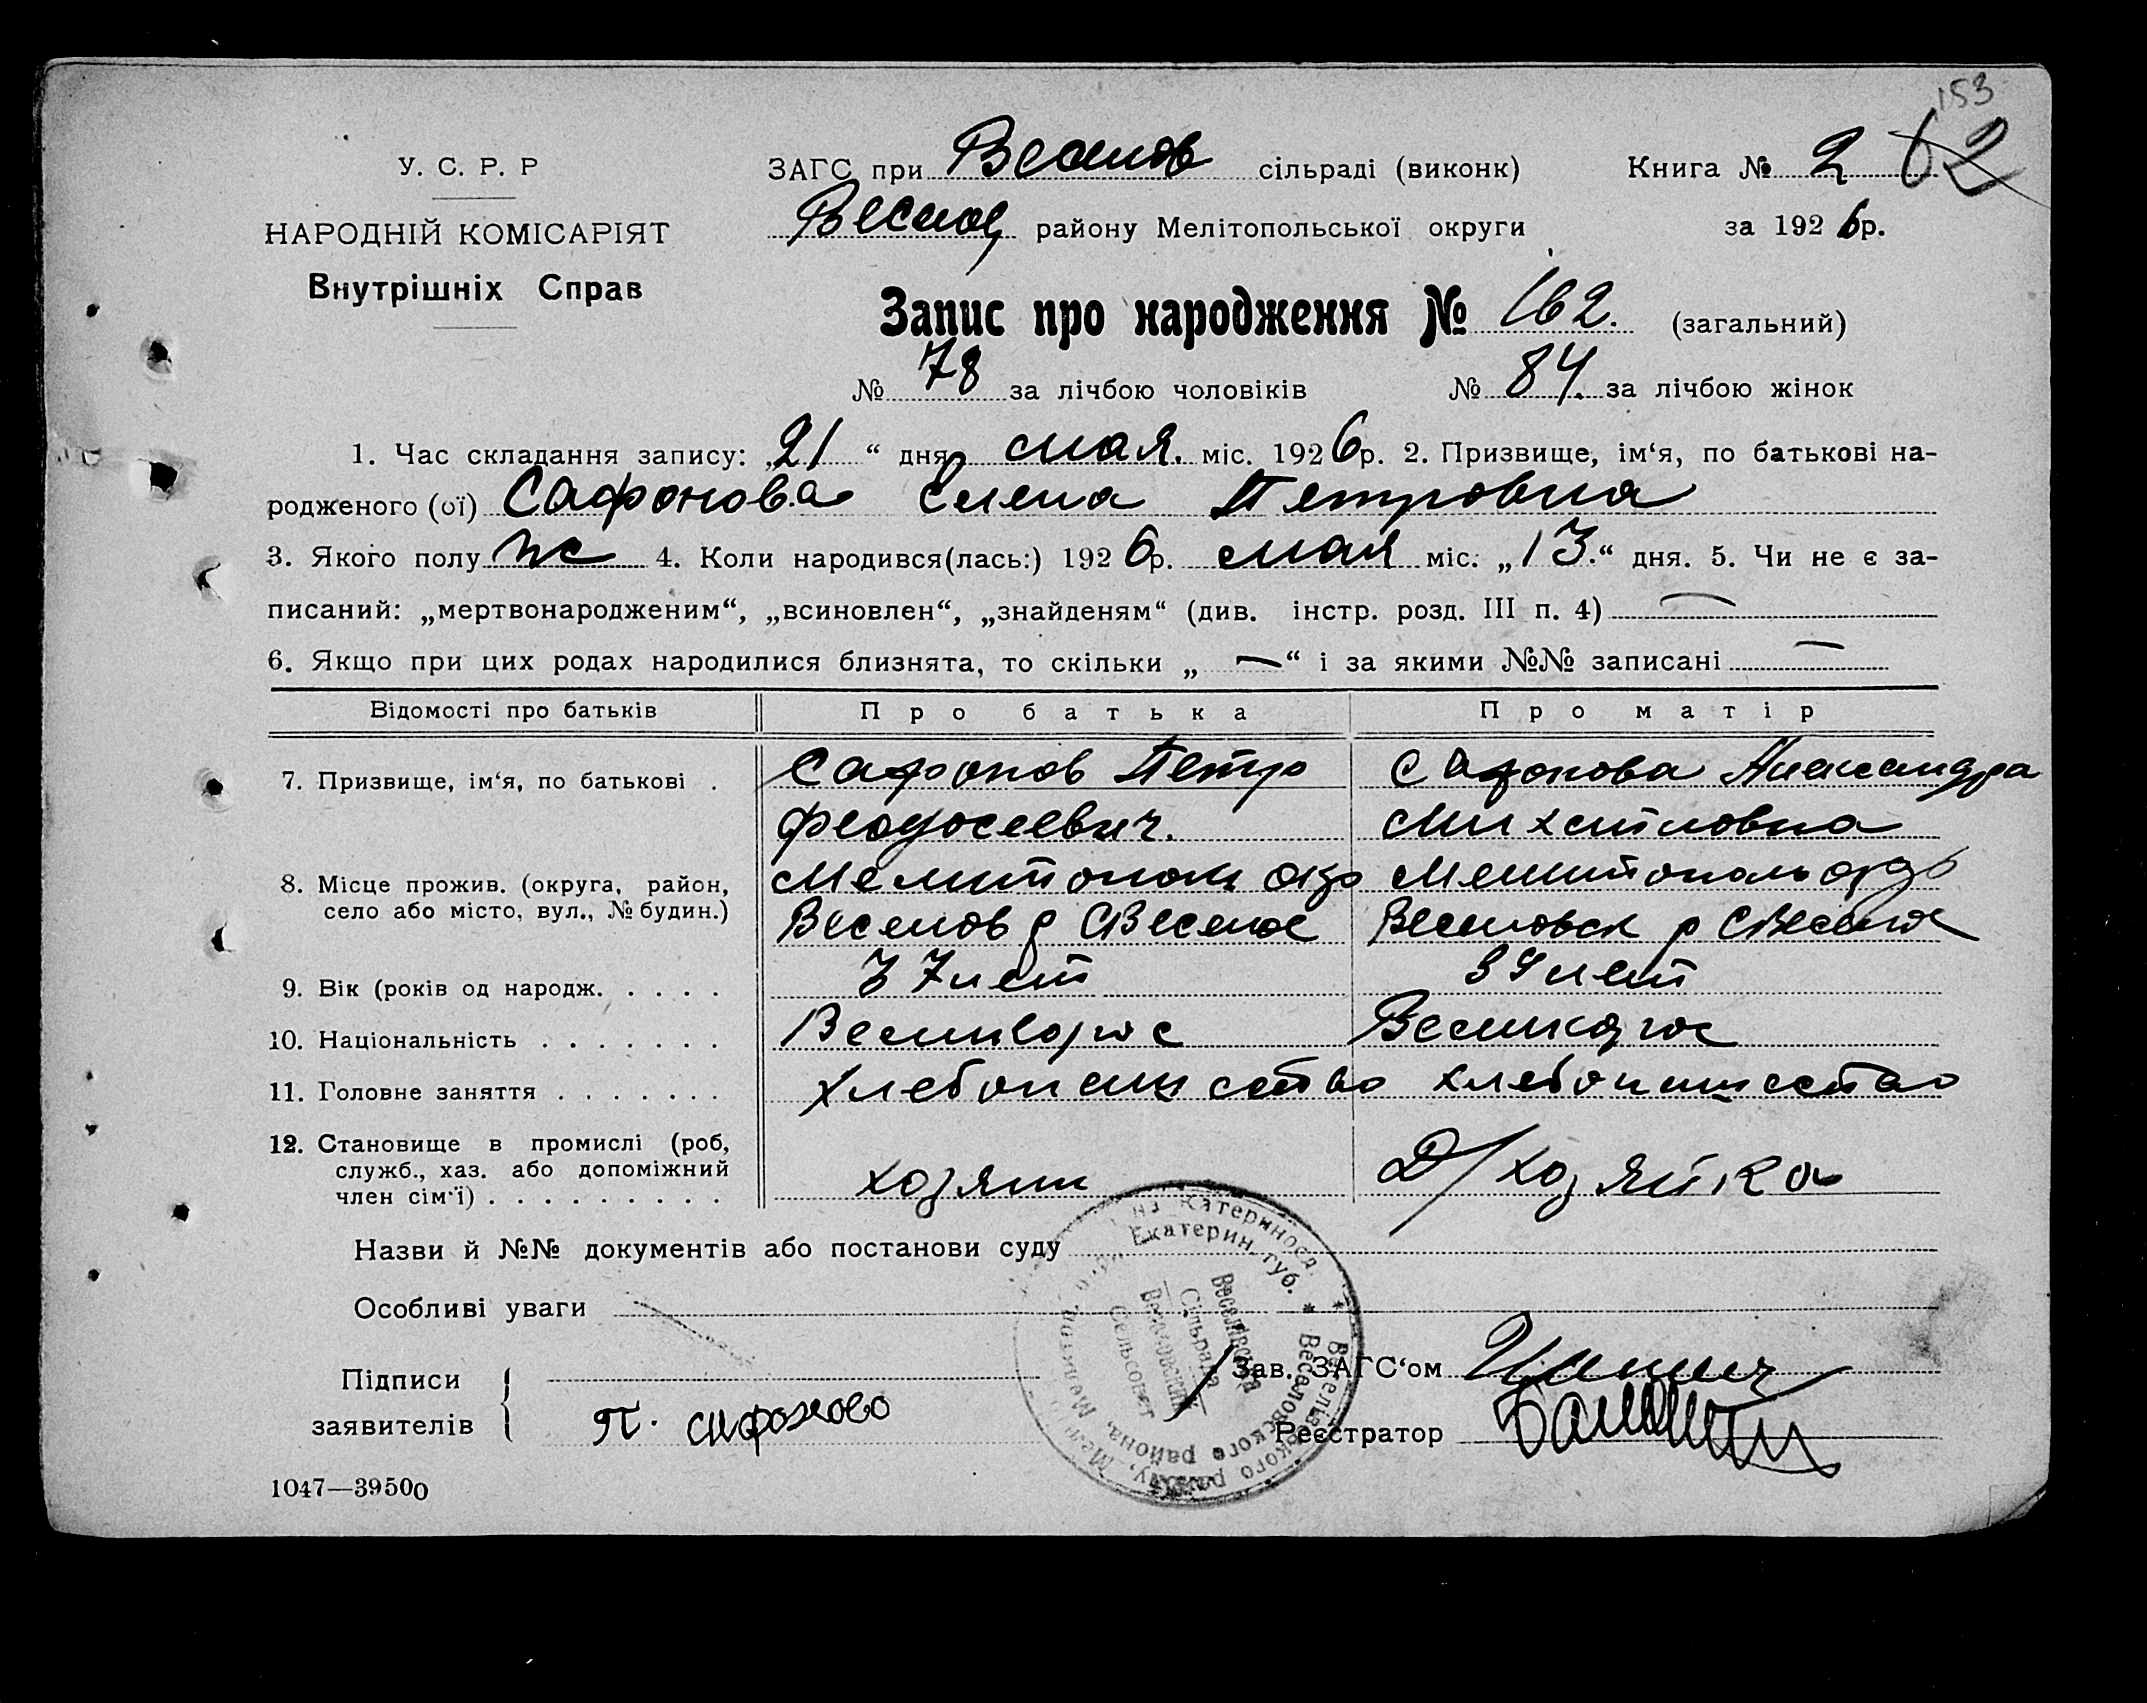 153
У. С. Р. Р
ЗАГС при Веселов сільраді (виконк) Книга № 2 62
НАРОДНІЙ КОМІСАРІЯТ
Веселов району Мелітопольської округи за 1926р.
Внутрішніх Справ
Запис про народження № 162. (загальний)
№ 78 за лічбою чоловіків № 84. за лічбою жінок
1. Час складання запису: „21“ дня мая. міс. 1926р. 2. Призвище, ім‘я, по батькові на-
родженого (ої) Сафонова Елена Петровна
3. Якого полу жс 4. Коли народився(лась:) 1926р. мая міс. „13.“ дня. 5. Чи не є за-
писаний: „мертвонародженим“, „всиновлен“, „знайденям“ (див. інстр. розд. III п. 4) —
6. Якщо при цих родах народилися близнята, то скільки „ — “ і за якими №№ записані —
Відомості про батьків Про батька Про матір
7. Призвище, ім‘я, по батькові . Сафонов Петр Сафонова Александра
Феодосеевич. Михайловна
8. Місце прожив. (округа, район, Мелитополь окр Мелитополь окр
село або місто, вул., № будин.) Веселов р СВеселое Веселовск р СВеселое
9. Вік (років од народж. . . . . 37 лет 39 лет
10. Національність . . . . . . . Великорос Великорос
11. Головне заняття . . . . . . . хлебопашество хлебопашество
12. Становище в промислі (роб,
служб., хаз. або допоміжний
член сім‘ї) . . . . . . . . . хозяин Д/хозяйка
Назви й №№ документів або постанови суду
Особливі уваги
Підписи Зав. ЗАГС‘ом
заявителів П. сафоново Реєстратор
Катериносл.
Екатерин. губ. * Веселовского района, Мелитоп.
Веселівська
Сільрада
Веселовский
Сельсовет
1047—39500